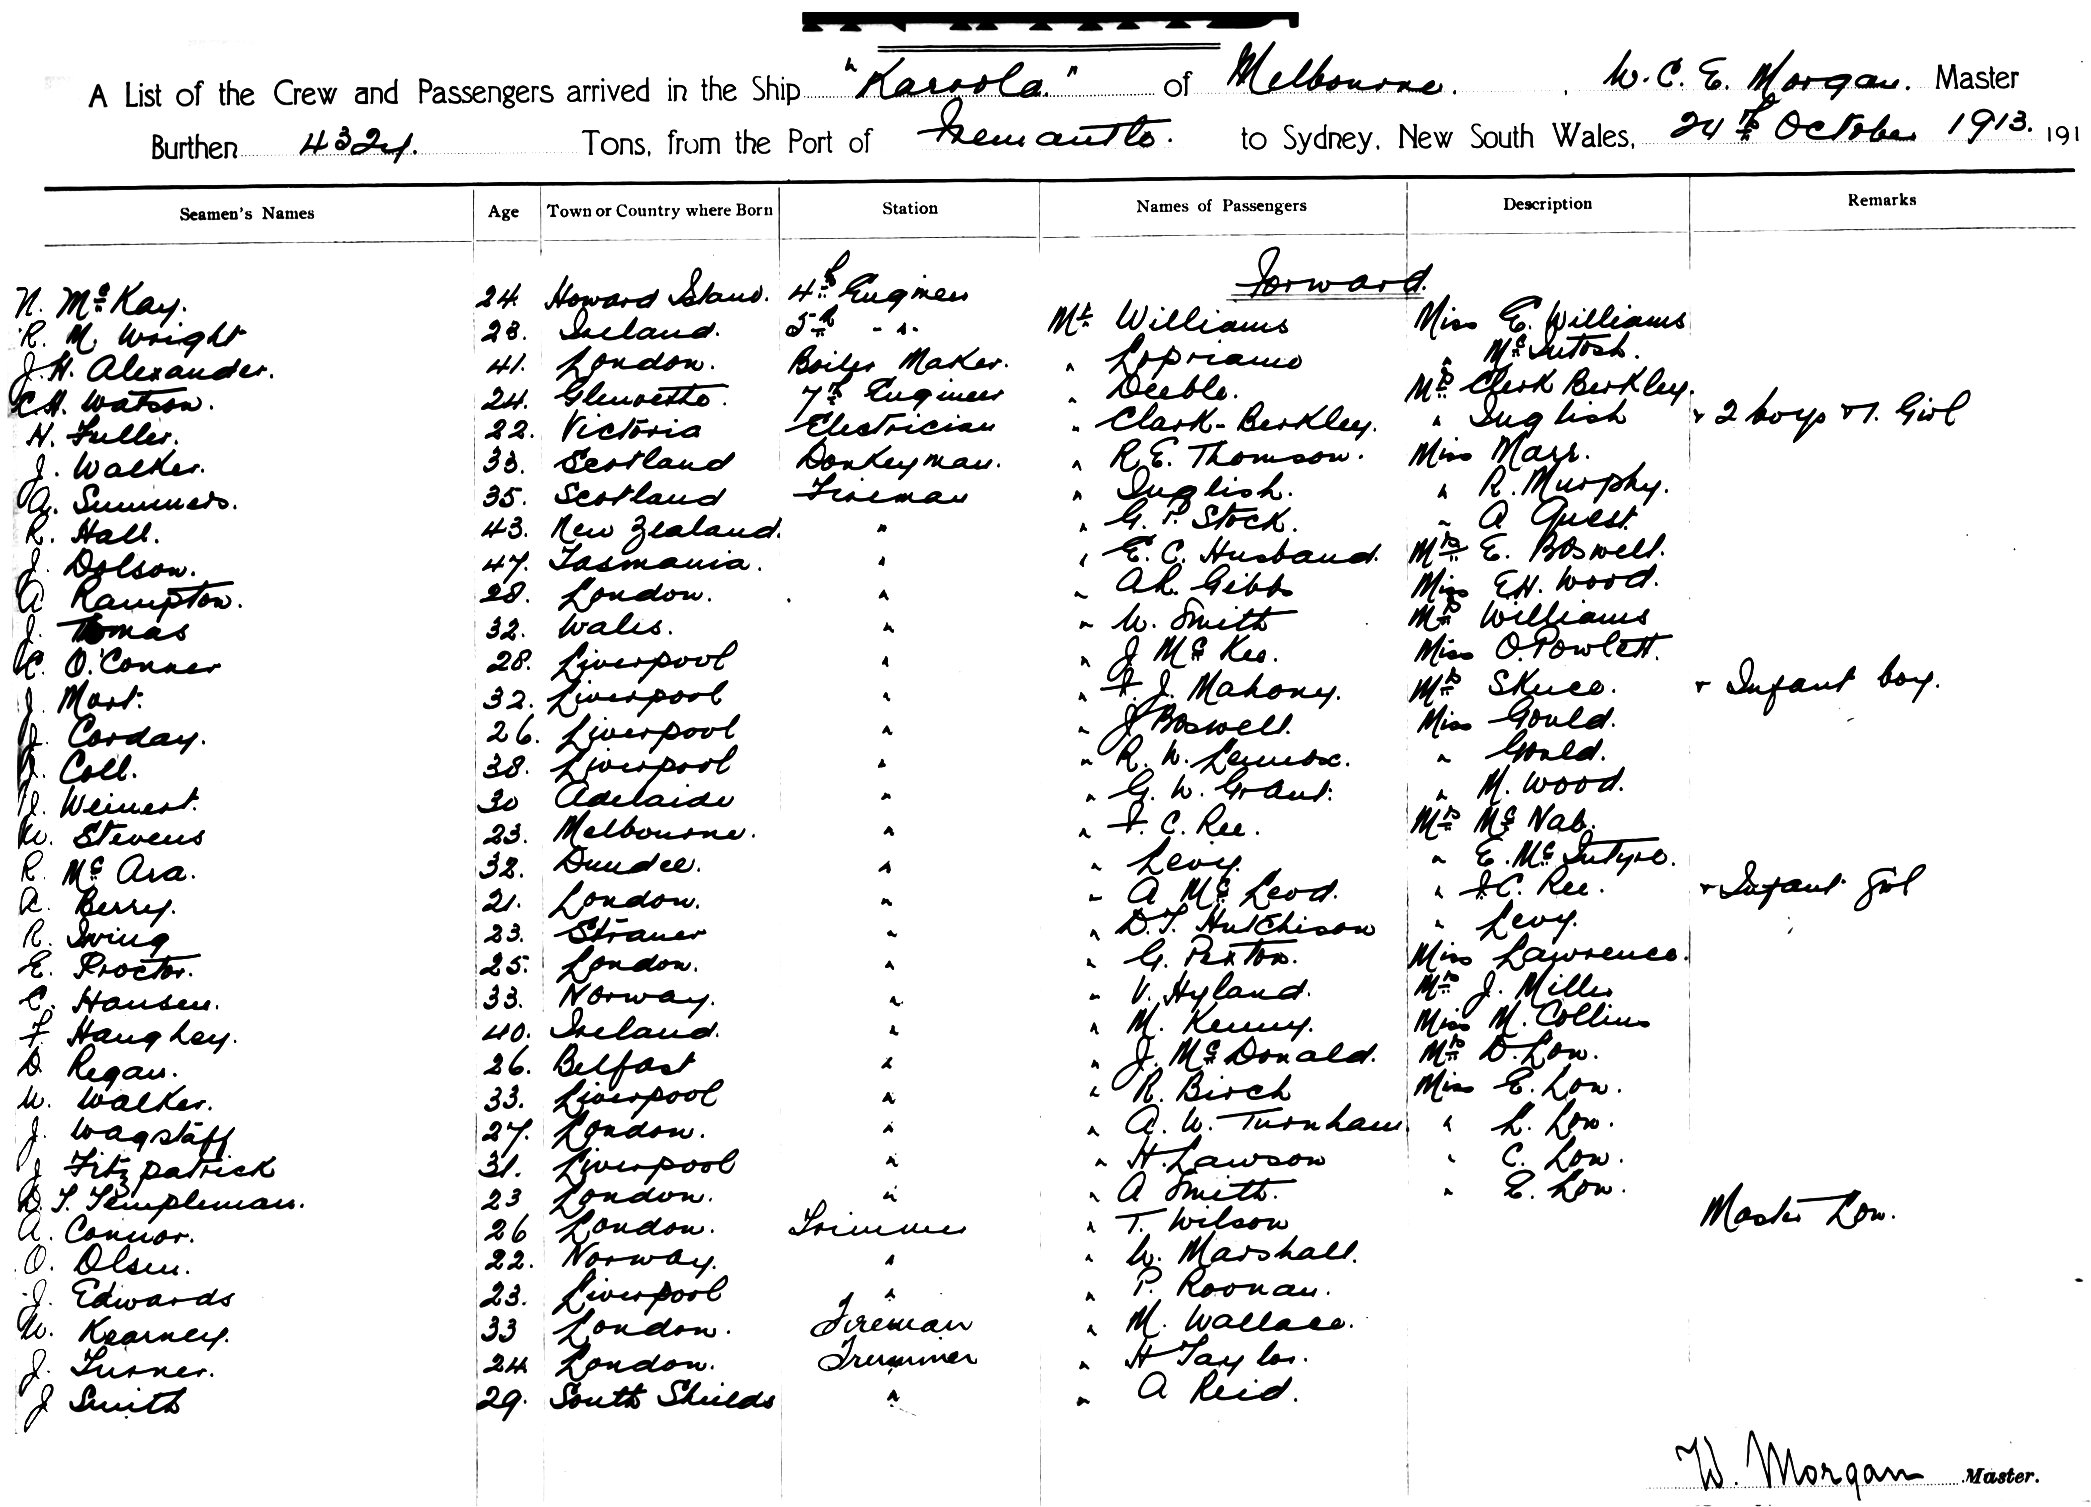 A List of the Crew and Passengers arrived in the Ship "Karoola" of Melbourne. , W. C. E. Morgan. Master
Burthen 4324. Tons, from the Port of Fremantle. to Sydney, New South Wales, 24th October 1913. 191
Seamen's Names Age Town or Country where Born Station Names of Passengers Description Remarks
Forward.
N. McKay. 24 Howard Island. 4th Engineer
R. M. Wright 28. Ireland. 5th " Mr Williams Miss E. Williams
J. H. Alexander. 41. London. Boiler Maker. " Lopriamo " McIntosh.
C H. Watson. 24. 7th Engineer " Deeble. Mrs Clark Berkley.
H. Fuller. 22. Victoria Electrician " Clark-Berkley. " Inglish + 2 boys & 1. Girl
J. Walker. 33. Scotland Donkeyman. " R. E. Thomson. Miss Marr.
A. Summers. 35. Scotland Fireman " Inglish. " R. Murphy.
R. Hall. 43. New Zealand. " " G. P. Stock. " A Guest.
J. Dolson. 47. Tasmania. " " E. C. Husband. Mrs E. Boswell.
A Rampton. 28. London. " " A. L. Gibbs Miss E. H. Wood.
J. Thomas 32. Wales. " " W. Smith Mrs Williams
C. O'Conner 28. Liverpool " " J McKee. Miss O. Powlett.
J. Mort. 32. Liverpool " " F. J. Mahony. Mrs Skuce. + Infant boy.
J. Corday. 26. Liverpool " " J Boswell. Miss Gould.
J. Coll. 38. Liverpool " " R. W. Lennox. " Gould.
Weinert. 30 Adelaide " " G. W. Grant. " M. Wood.
W. Stevens 23. Melbourne. " " F. C. Ree. Mrs McNab.
R. McAra. 32. Dundee. " " Levy. " E. McIntyre.
A. Berry. 21. London. " " A McLeod. " F C. Ree. + Infant girl
R. Irving 23. Straner " " D. T. Hutchison " Levy.
E. Proctor. 25. London. " " G. Pexton. Miss Lawrence.
C. Hansen. 33. Norway. " " V. Hyland. Mrs J. Miller
F. Haughey. 40. Ireland. " " M. Kenny. Miss M. Collins
D Regan. 26. Belfast " " J. McDonald. Mrs D. Low.
W. Walker. 33. Liverpool " " R. Birch Miss E. Low.
J. Wagstaff 27. London. " " A. W. Turnham " L. Low.
J Fitzpatrick 31. Liverpool " " H. Lawson " C. Low.
D. T. Templeman. 23 London. " " A Smith. " E. Low.
A. Connor. 26 London. Trimmer " T. Wilson Master Low.
O. Olsen. 22. Norway. " " W. Marshall.
J. Edwards 23. Liverpool " " P. Roonan.
W. Kearney. 33 London. Fireman " M. Wallace.
J. Turner. 24 London. Trimmer " H Taylor.
J Smith 29. South Shields " " A Reid.
W. Morgan Master.